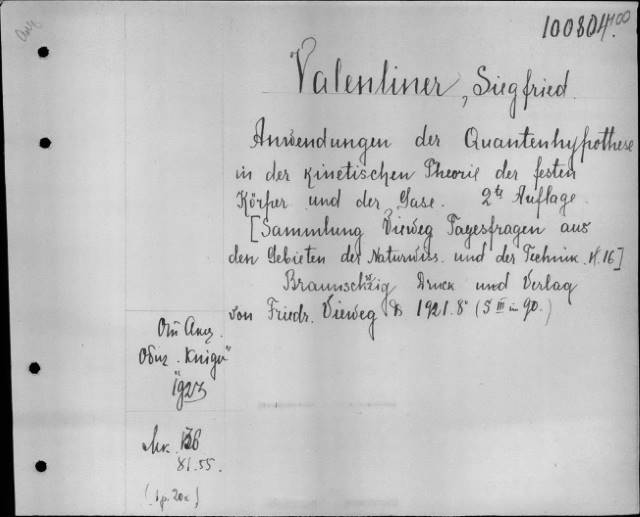 100804
Valentiner, Siegfried.
Anwendungen der Quantenhypothese
in der kinetischen Theorie der festen
Körper und der Gase. 2te Auflage
[Sammlung Vieweg Tagesfragen aus
den Gebieten der Naturwiss. und der Technik. H. 16]
Braunschweig Druck und Verlag
von Friedr. Vieweg 1921. 8° (5 III 90.)
От Акц.
Общ. "Книга"
1923
136
81.55.